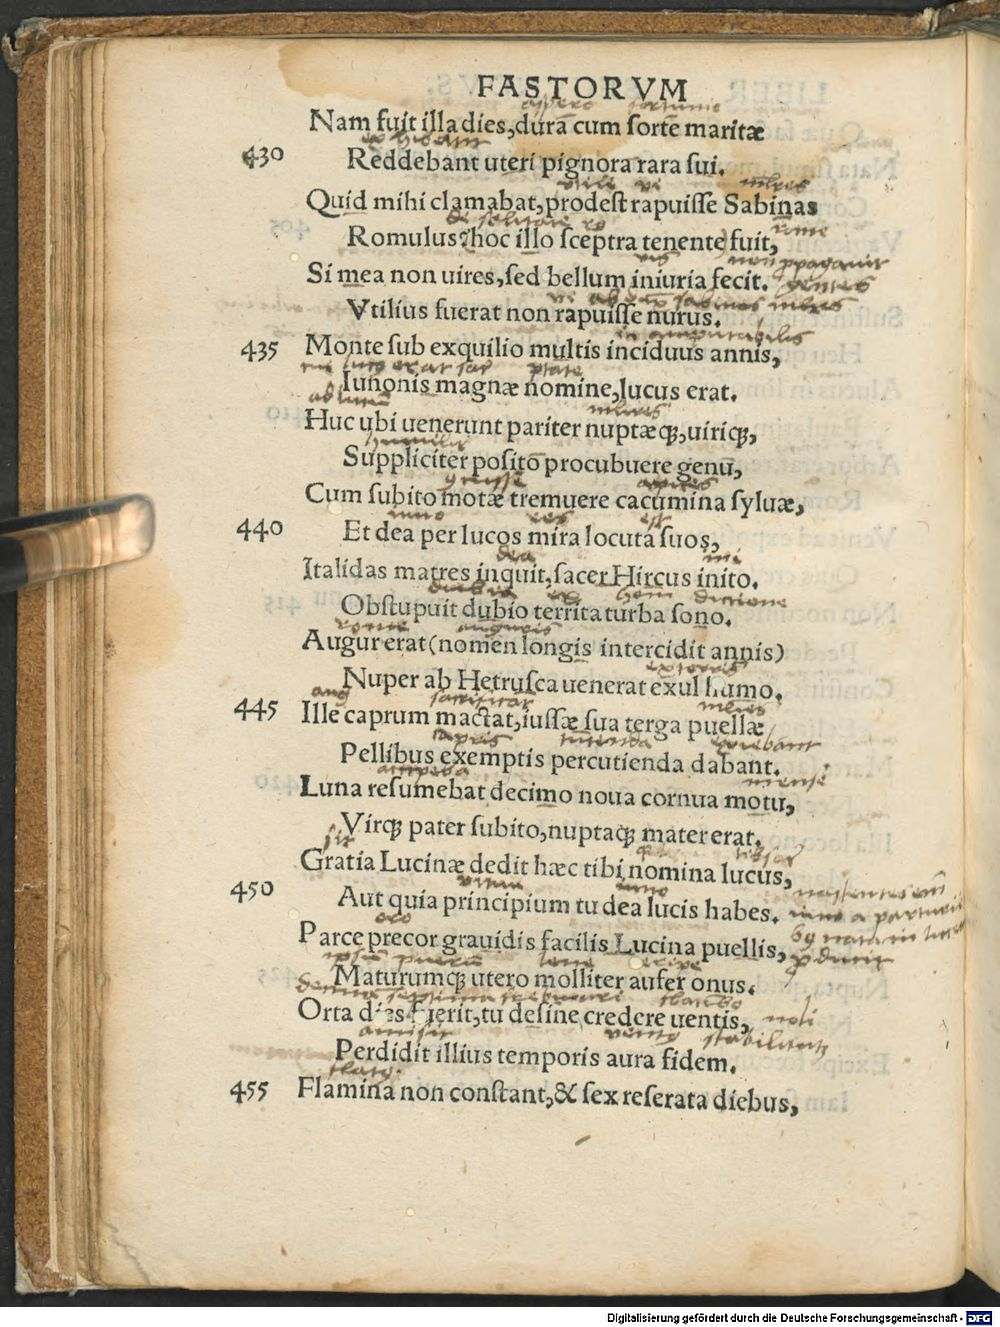 FASTORVM
aspera fortuna
Nam fuit illa dies,durā cum sorte maritæ
430 Reddebant uteri pignora rara sui.
utile vi mlieres
Quid mihi clamabat,prodest rapuisse Sabinas
Romulus?(hoc illo sceptra tenente)fuit,
vis non ppagauit
Si mea non uires,sed bellum iniuria fecit.
gentes
Vtilius fuerat non rapuisse nurus.
in amputabilis
435 Monte sub exquilio multis inciduus annis,
Iunonis magnæ nomine,lucus erat.
mlieres
Huc ubi uenerunt pariter nuptæq;,uiriq;,
humiliter
Suppliciter posito procubuere genu,
apices
Cum subito motæ tremuere cacumina syluæ,
iuno res est
440 Et dea per lucos mira locuta suos,
dea
Italidas matres inquit,sacer Hircus inito.
dictione
Obstupuit dubio territa turba sono.
auguris
Augur erat(nomen longis intercidit annis)
Nuper ab Hetrusca uenerat exul humo.
aug sacrificat mlieres
445 Ille caprum mactat,iussæ sua terga puellæ
capris
Pellibus exemptis percutienda dabant.
mense
Luna resumebat decimo noua cornua motu,
Virq; pater subito,nuptaq; mater erat.
sit
Gratia Lucinæ dedit hæc tibi nomina lucus,
iuno
450 Aut quia principium tu dea lucis habes.
oro
Parce precor grauidis facilis Lucina puellis,
Maturumq; utero molliter aufer onus.
Orta dies fuerit,tu desine credere uentis,
noli
vento stabilitatē
Perdidit illius temporis aura fidem.
455 Flamina non constant,& sex reserata diebus,
Digitalisierung gefördert durch die Deutsche Forschungsgemeinschaft - DFG